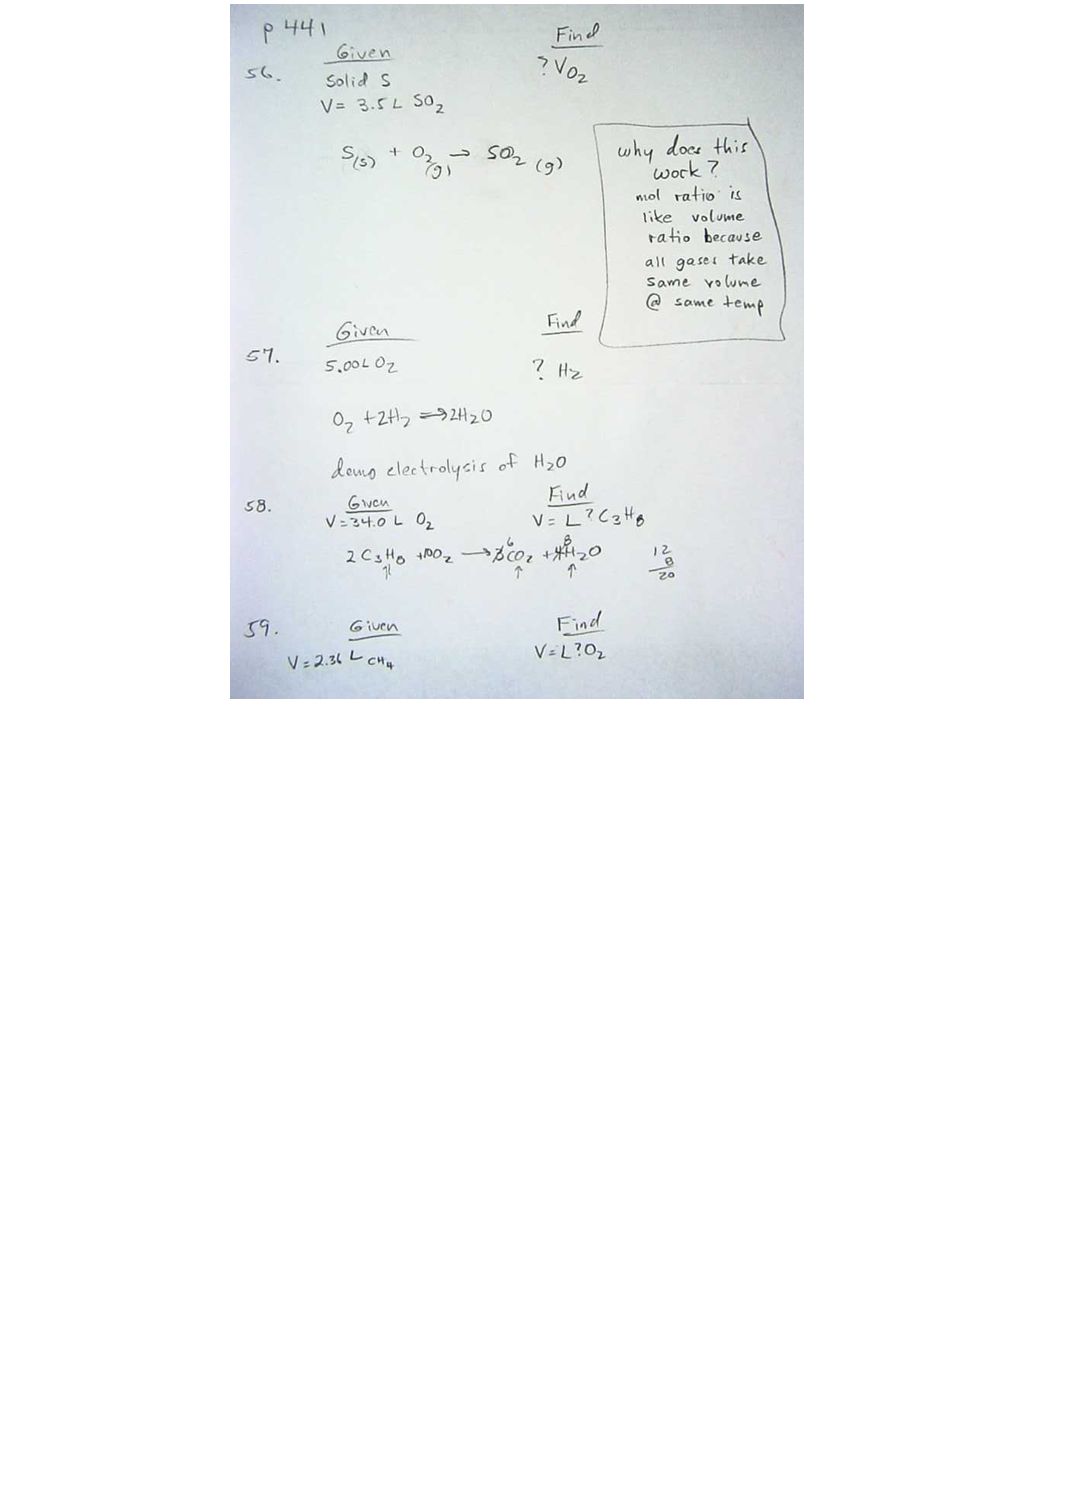 p 441
Given Find
56. Solid S ? VO2
V = 3.5 L SO2
S(s) + O2(g) → SO2(g)
why does this
work?
mol ratio is
like volume
ratio because
all gases take
same volume
@ same temp
Given Find
57. 5.00L O2 ? H2
O2 + 2H2 ⇒ 2H2O
demo electrolysis of H2O
58. Given Find
V = 34.0 L O2 V = L ? C3H8
2 C3H8 + 10O2 → 6CO2 + 8H2O
12
8
20
59. Given Find
V = 2.36 L CH4 V = L ? O2